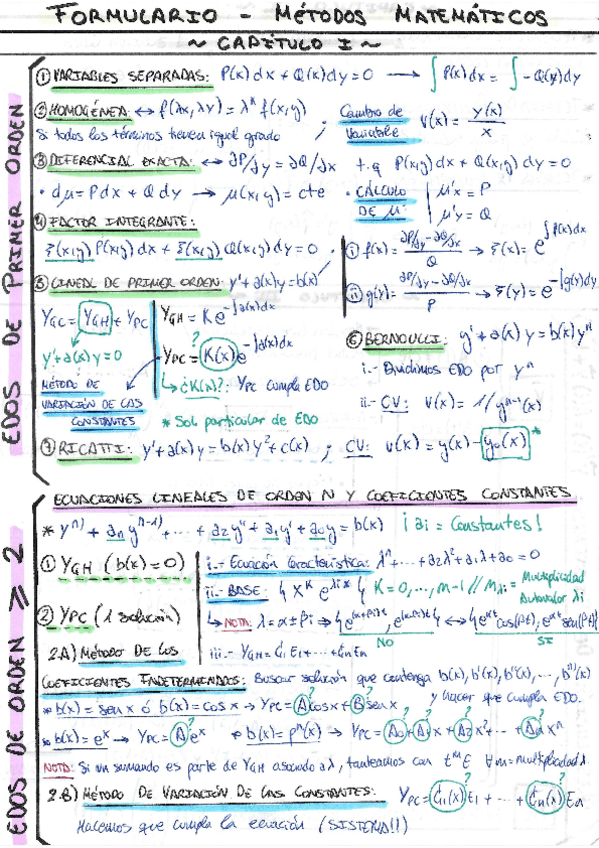 FORMULARIO - MÉTODOS MATEMÁTICOS
~ CAPÍTULO I ~
EDOS DE PRIMER ORDEN
① VARIABLES SEPARADAS: P(x)dx + Q(x)dy = 0 → ∫P(x)dx = ∫-Q(y)dy
② HOMOGÉNEA ↔ f(λx, λy) = λⁿ f(x,y) ; Cambio de Variable v(x) = y(x)/x
Si todos los términos tienen igual grado
③ DIFERENCIAL EXACTA: ↔ ∂P/∂y = ∂Q/∂x t.q P(x,y)dx + Q(x,y)dy = 0
· dμ = Pdx + Qdy → μ(x,y) = cte · CÁLCULO DE μ: μ'x = P
μ'y = Q
④ FACTOR INTEGRANTE:
ξ(x,y) P(x,y)dx + ξ(x,y) Q(x,y)dy = 0
ⓘ f(x) = (∂P/∂y - ∂Q/∂x)/Q → ξ(x) = e^∫f(x)dx
ⓘⓘ g(y) = (∂P/∂y - ∂Q/∂x)/P → ξ(y) = e^-∫g(y)dy
⑤ LINEAL DE PRIMER ORDEN: y' + a(x)y = b(x)
YGC = YGH + YPC
y' + a(x)y = 0
MÉTODO DE VARIACIÓN DE LAS CONSTANTES
YGH = K e^-∫a(x)dx
YPC = K(x)? e^-∫a(x)dx
↳ ¿K(x)?: YPC cumpla EDO
* Sol particular de EDO
⑥ BERNOULLI: y' + a(x)y = b(x)yⁿ
i.- Dividimos EDO por yⁿ
ii.- CV: v(x) = 1/yⁿ⁻¹(x)
⑦ RICATTI: y' + a(x)y = b(x)y² + c(x) ; CV: v(x) = y(x) - y₀(x)*
EDOS DE ORDEN ≥ 2
ECUACIONES LINEALES DE ORDEN N Y COEFICIENTES CONSTANTES
* yⁿ⁾ + aₙ yⁿ⁻¹⁾ + ... + a₂y'' + a₁y' + a₀y = b(x) ¡ ai = Constantes!
① YGH (b(x) = 0)
i.- Ecuación Característica: λⁿ + ... + a₂λ² + a₁λ + a₀ = 0
ii.- BASE: { x^K e^λix } K = 0, ..., m-1 // Mλi = Multiplicidad Autovalor λi
↳ NOTA: λ = α ± βi → { e^(α+βi)t, e^(α-βi)t } ↔ { e^αt cos(βt), e^αt sen(βt) }
NO SI
iii.- YGH = C₁E₁ + ... + CnEn
② YPC (1 solución)
2.A) MÉTODO DE LOS
COEFICIENTES INDETERMINADOS: Buscar solución que contenga b(x), b'(x), b''(x), ..., bⁿ⁾(x)
y hacer que cumpla EDO.
* b(x) = sen x ó b(x) = cos x → YPC = A? cos x + B? sen x
* b(x) = eˣ → YPC = A? eˣ * b(x) = pⁿ(x) → YPC = A₀? + A₁? x + A₂? x² + ... + An? xⁿ
NOTA: Si un sumando es parte de YGH asociado a λ, tanteamos con tᵐE ∀ m = multiplicidad λ
2.B) MÉTODO DE VARIACIÓN DE LAS CONSTANTES: YPC = C₁(x)? E₁ + ... + Cn(x)? En
Hacemos que cumpla la ecuación (SISTEMA!!)